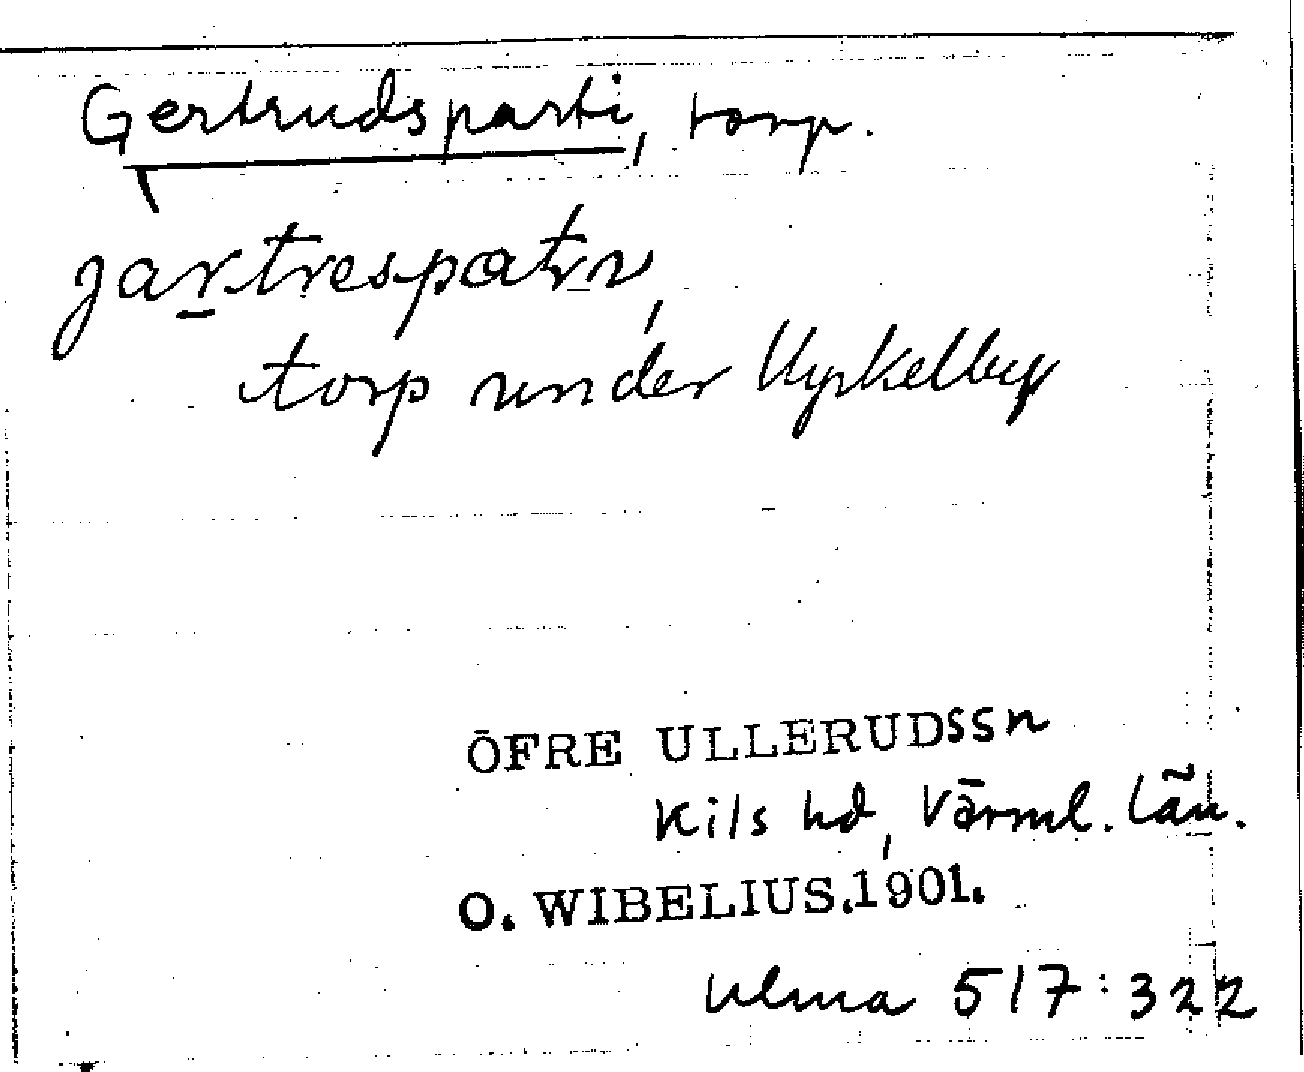 Gertrudsparti, torp.
jaṟtrespatrn,
torp under Kyrkelby
ÖFRE ULLERUDSSn
Kils hd, Värml. län.
O. WIBELIUS.1901.
Ulma 517:322